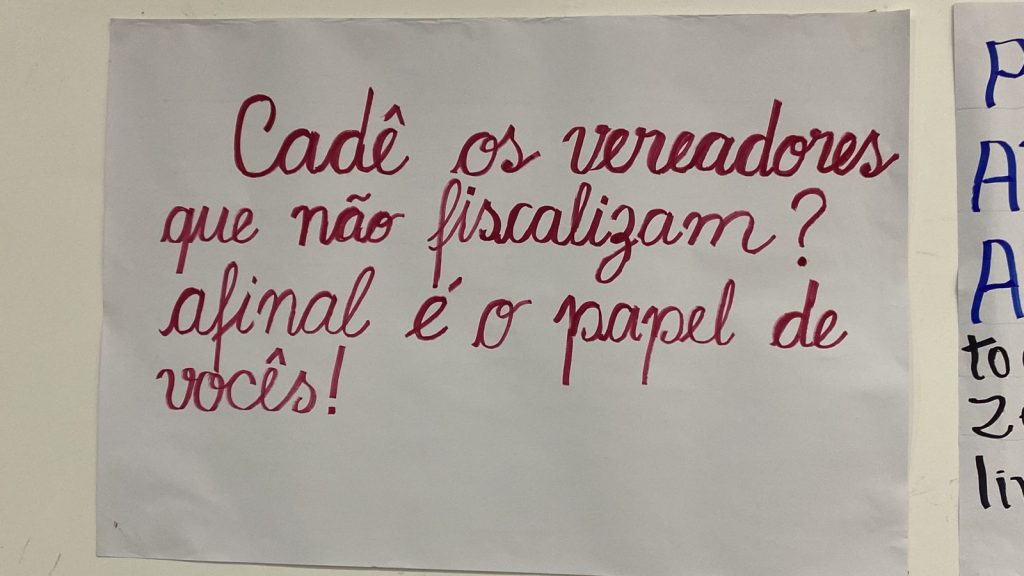 Cadê os vereadores
que não fiscalizam?
afinal é o papel de
vocês!
P
A
A
to